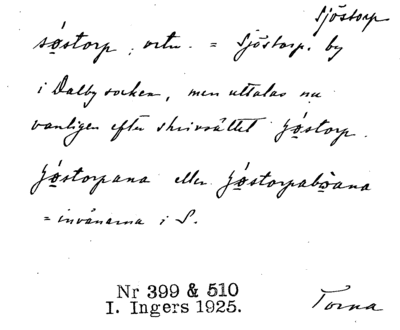 Sjöstorp
søstorp, ortn. = Sjöstorp, by
i Dalby socken, men uttalas nu
vanligen efter skrivsättet ʃøstorp.
ʃøstorpana eller ʃøstorpaboana
= invånarna i S.
Nr 399 & 510
I. Ingers 1925.
Torna